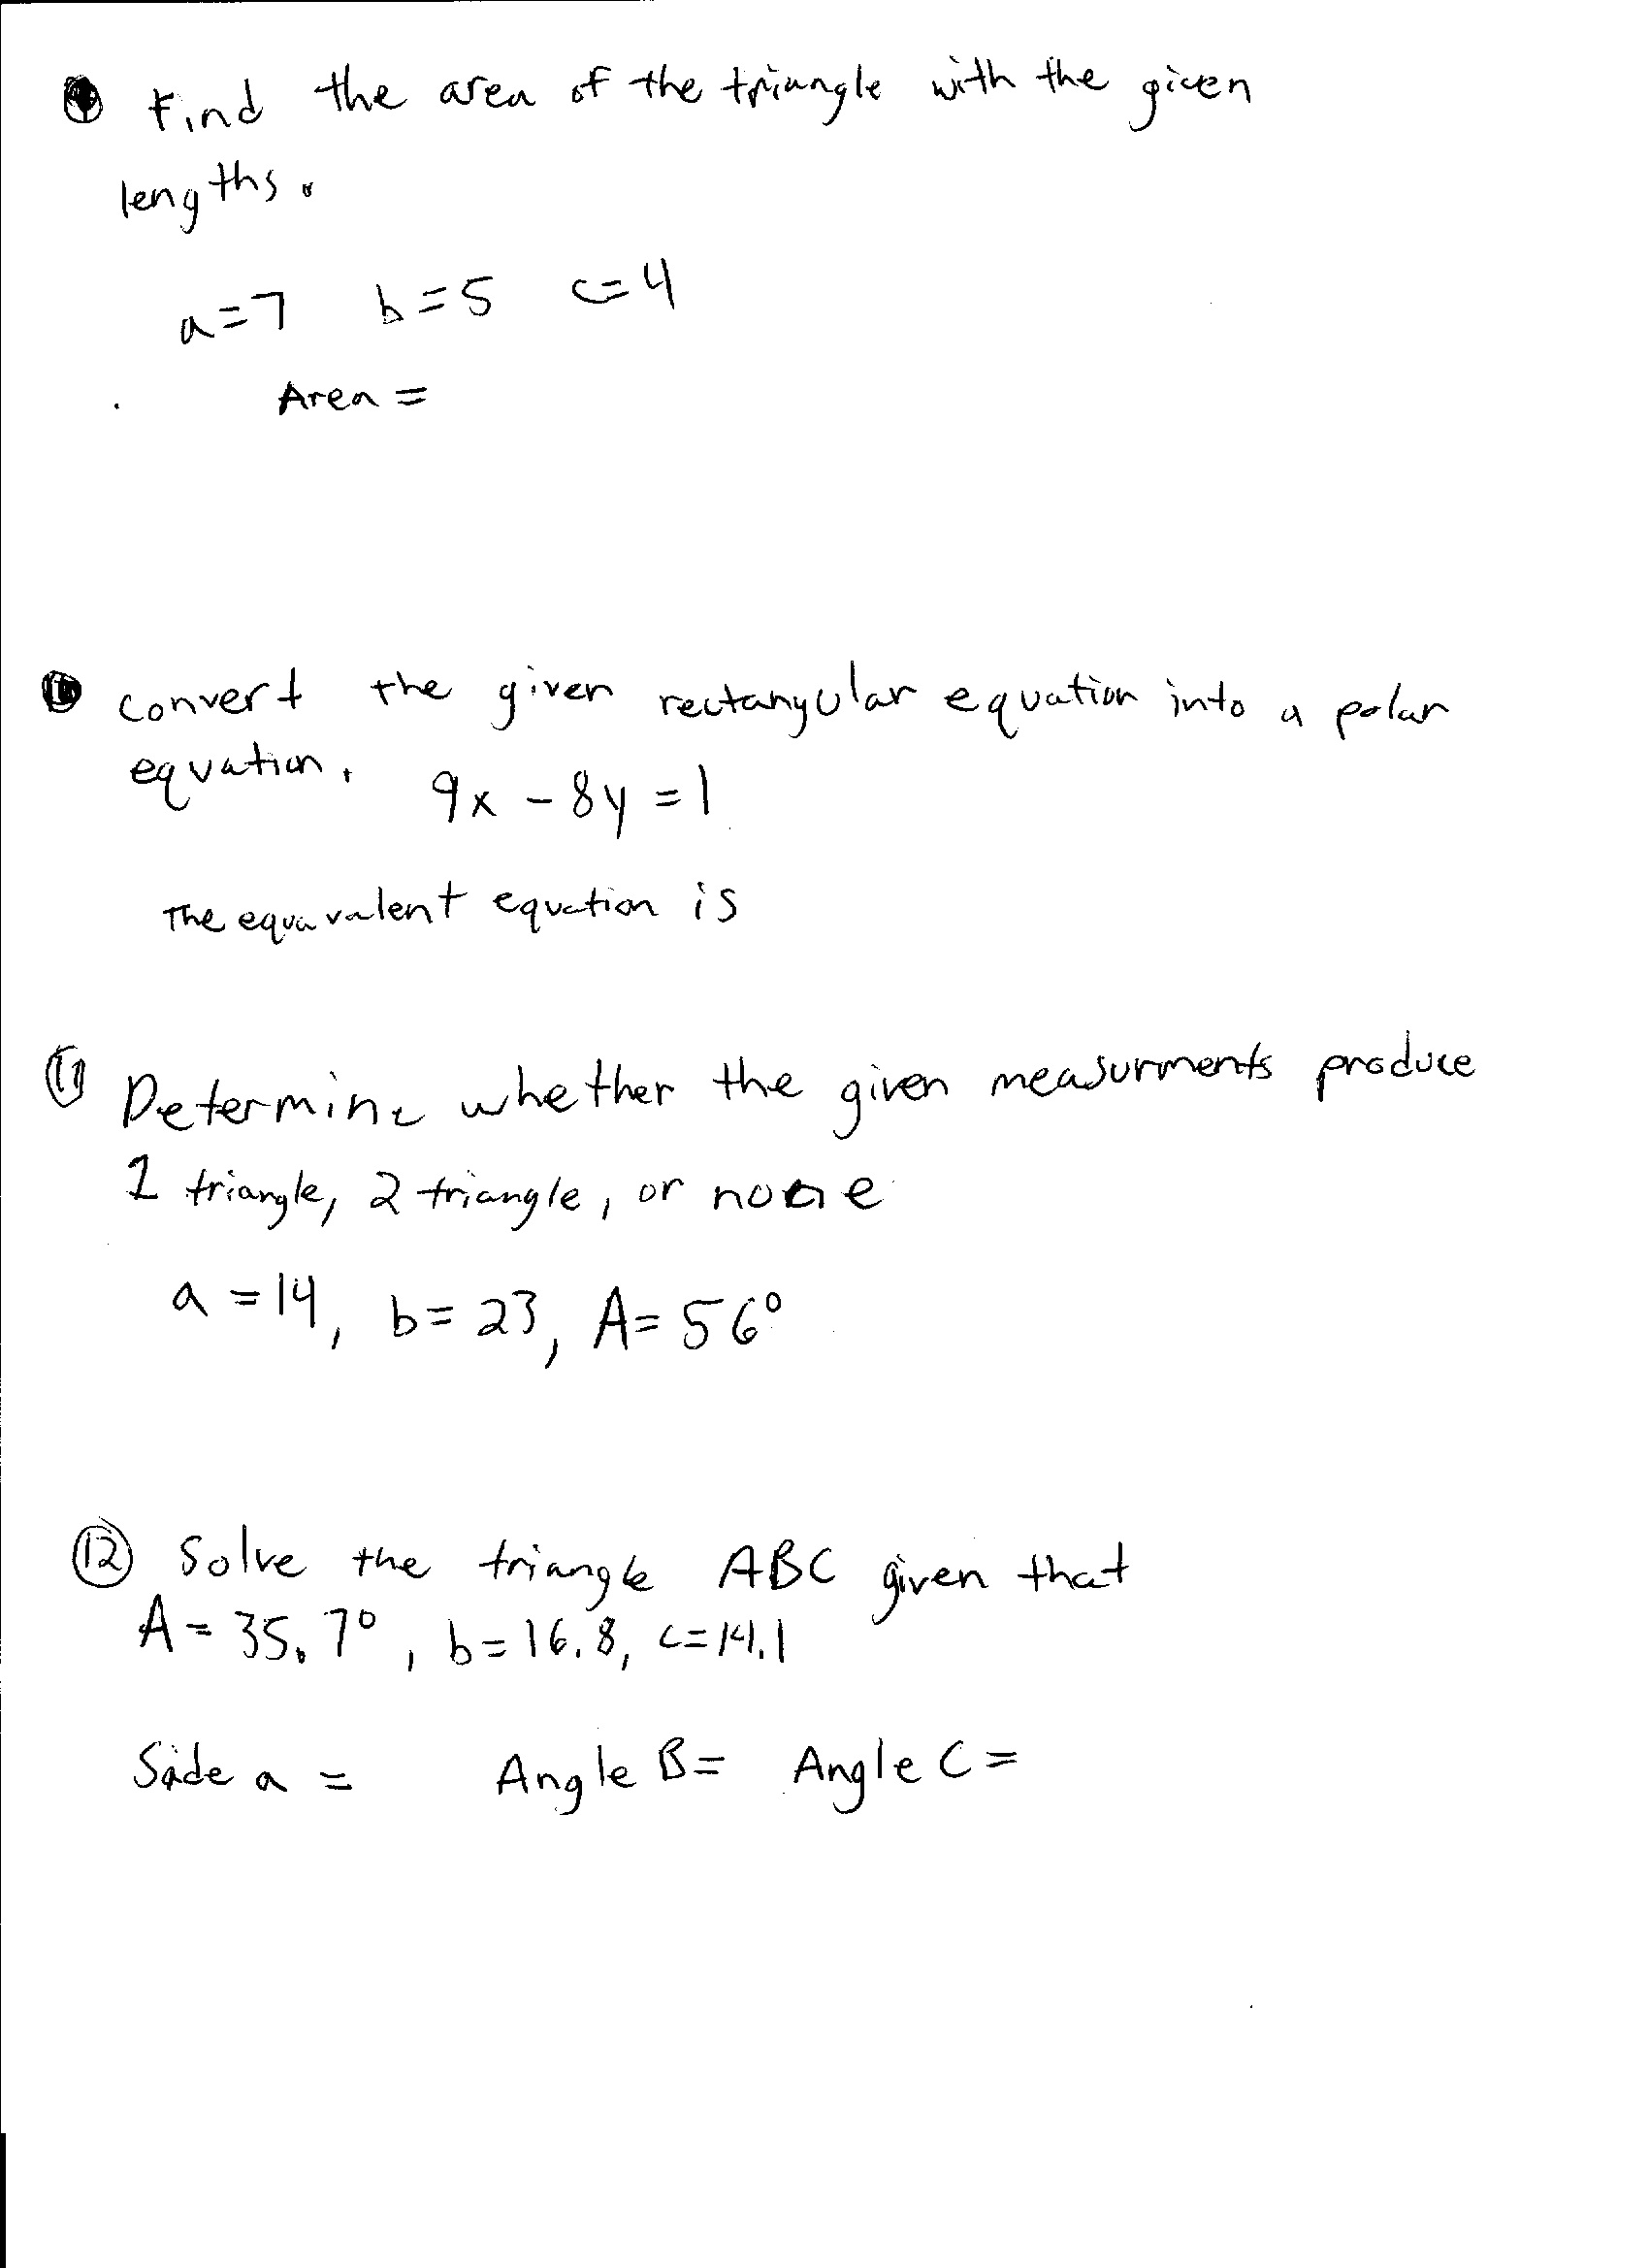 Find the area of the triangle with the given
lengths.
a=7 b=5 c=4
Area =
convert the given rectangular equation into a polar
equation.
9x - 8y = 1
The equavalent equation is
11 Determine whether the given measurments produce
1 triangle, 2 triangle, or none
a = 14, b = 23, A = 56°
12 Solve the triangle ABC given that
A = 35.7°, b = 16.8, c = 14.1
Side a = Angle B = Angle C =